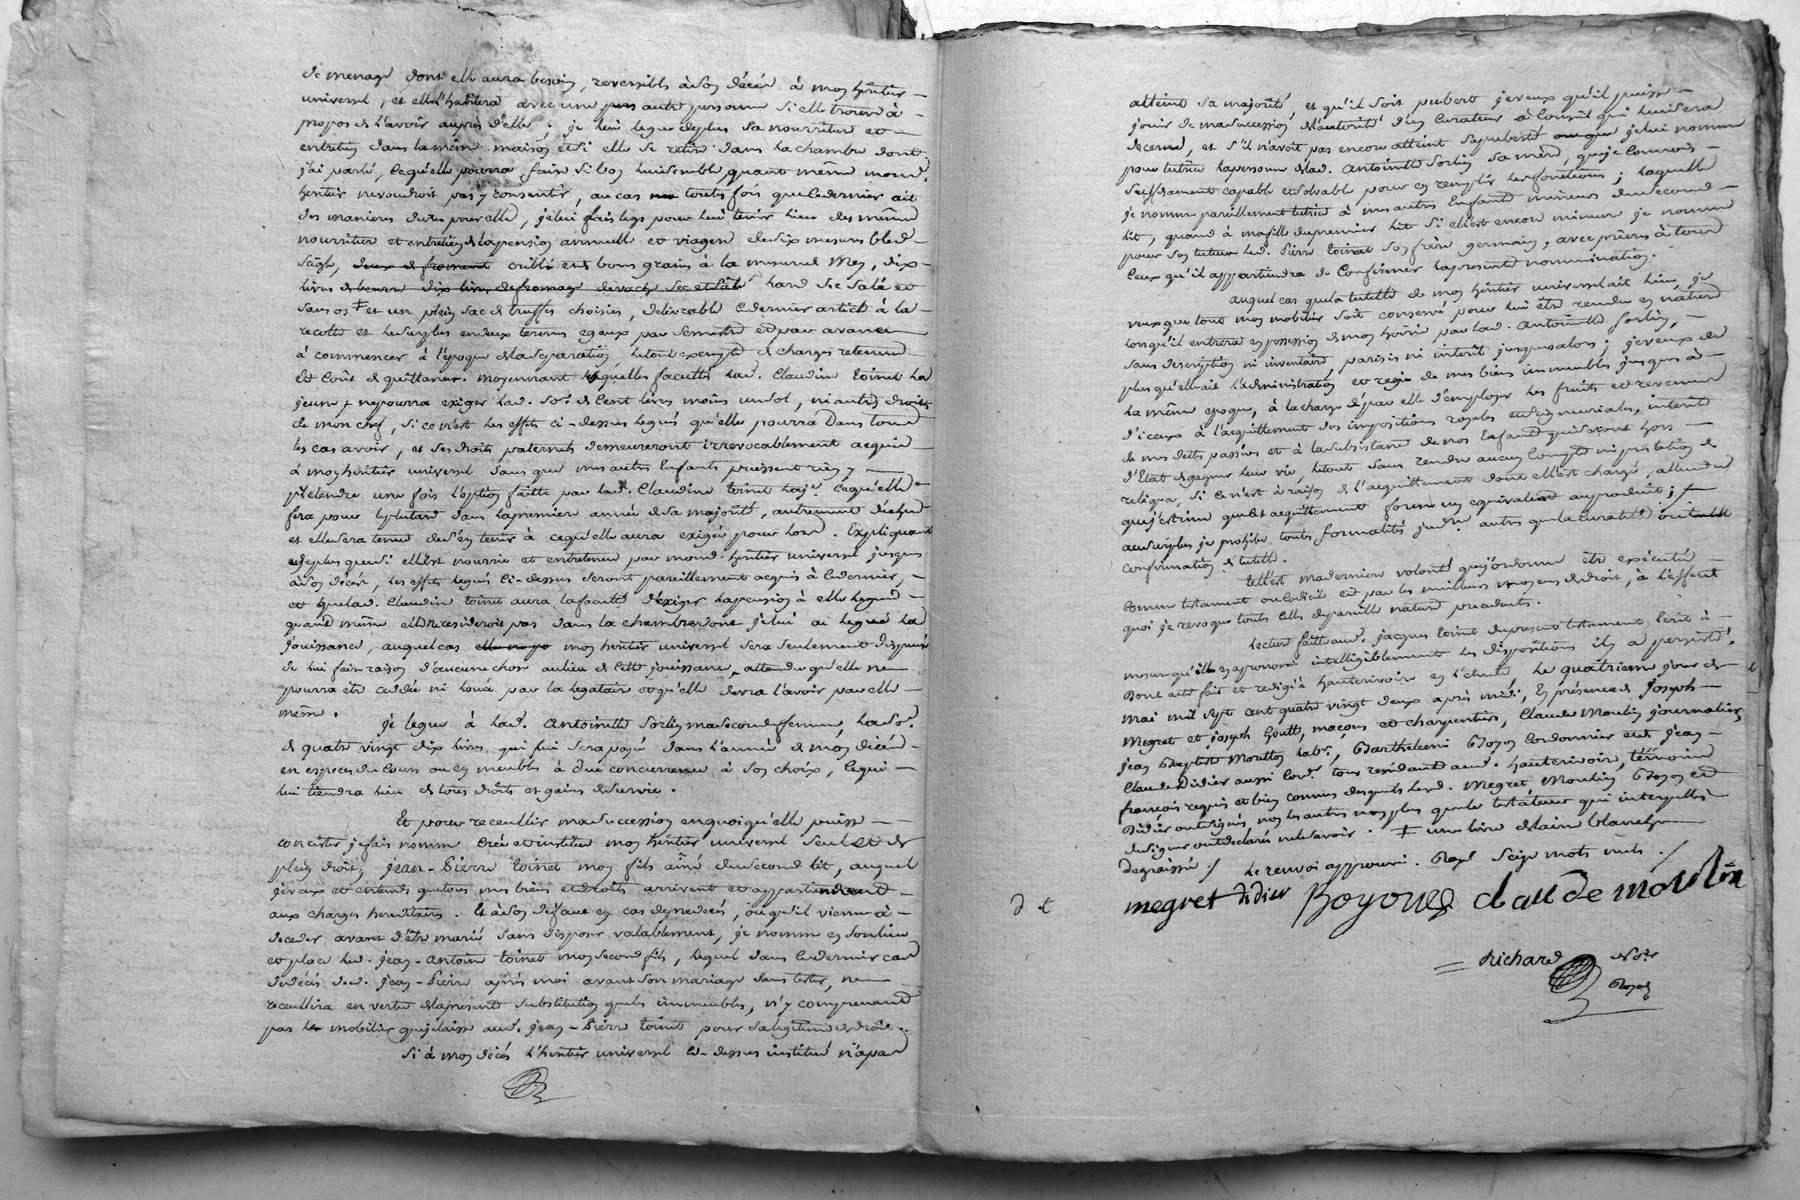 de menage dont elle aura besoin, reversibles à son décés à mon héritier
universel, et elle l'habitera avec une autre personne si elle trouve à
propos de l'avoir auprès d'elle ; je lui legue de plus sa nourriture et
entretien dans la même maison, et si elle se retire dans la chambre dont
j'ai parlé, ce qu'elle pourra faire si bon lui semble, quant même mond.
heritier ne voudroit pas y consentir, au cas toutes fois que ce dernier ait
des manieres dures pour elle, je lui fais legs pour lui tenir lieu des mêmes
nourriture et entretien de la pension annuelle et viagere de six mesures bled
seigle, deux de froment criblé et de bons grains à la mesure de Mey, dix
livres de beurre dix livres de fromage de vache sec et salé lard sec salé et
sans os ╪ et un plein sac de truffes choisies, délivrable ce dernier article à la
recolte et le surplus en deux termes egaux par semestre et par avance
à commencer à l'époque de la separation, le tout exempt de charges retenue
et coût de quittance. moyennant lesquelles facultés lad. Claudine toinet la
jeune ne pourra exiger lad. so.e de cent livres moins un sol, ni autres droits
de mon chef, si ce n'est les effets ci-dessus legués qu'elle pourra dans tous
les cas avoir, et ses droits paternels demeureront irrevocablement acquis
à mon héritier universel sans que mes autres enfants puissent rien y
prétendre une fois l'option faitte par lad. Claudine toinet la j.e ce qu'elle
fera pour le plus tard dans la premiere année de sa majorité, autrement déchue
et elle sera tenue de s'en tenir à ce qu'elle aura exigé pour lors. Expliquant
de plus que si elle est nourrie et entretenue par mond. héritier universel jusques
à son décés, les effets legués ci-dessus seront pareillement acquis à ce dernier,
et que lad. Claudine toinet aura la faculté d'exiger la pension à elle leguée
quand même elle ne residerois pas dans la chambre dont je lui ai legué la
jouissance, auquel cas mon heritier universel sera seulement dispensé
de lui faire raison d'aucune chose au lieu de cette jouissance, attendu qu'elle ne
pourra être cedée ni louée par la legataire et qu'elle devra l'avoir par elle
même.
je legue à lad. Antoinette Sorlin ma seconde femme, la so.e
de quatre vingt dix livres qui lui sera payé dans l'année de mon décés
en especes du cours ou en meubles à due concurrence à son choix, ce qui
lui tiendra lieu de tous droits et gains de survie.
Et pour receuillir ma succession en quoi qu'elle puisse
concister je fais nomme crée et institue mon héritier universel seul et de
plein droit, jean-Pierre toinet mon fils ainé du second lit, auquel
je veux et entends que tous mes biens et droits arrivent et appartiennent
aux charges hereditaires. Et à son défaut en cas de predecés, ou qu'il vienne à
deceder avant d'être marié sans disposer valablement, je nomme en son lieu
et place led. jean-Antoine toinet mon second fils, lequel dans ce dernier cas
du décés dud. jean-Pierre après moi avant son mariage sans tester, ne
receuillira en vertu de la presente substitution que les immeubles, n'y comprenant
pas le mobilier que je laisse aud. jean-Pierre toinet pour sa legitime de droit.
Si à mon décés l'heritier universel ci-dessus institué n'a pas
atteint sa majorité, et qu'il soit pubert je veux qu'il puisse
jouir de ma succession de l'autorité d'un curateur à conseil qui lui sera
decerné, et s'il n'avoit pas encore atteint sa puberté je lui nomme
pour tutrice la personne de lad. Antoinette Sorlin sa mère, que je connois
suffisament capable et solvable pour en remplir les fonctions ; laquelle
je nomme pareillement tutrice à mes autres enfants mineurs du second
lit, quand à ma fille du premier lit si elle est encore mineure je nomme
pour son tuteur led. Pierre toinet son frère germain, avec prières à tous
ceux qu'il appartiendra de confirmer la presente nomination.
auquel cas que la tutelle de mon héritier universel ait lieu, je
veux que tout mon mobilier soit conservé pour lui être rendu en nature
lorsqu'il entrera en possession de mon hoirie par lad. Antoinette Sorlin,
sans description ni inventaire, parisis ni interêt jusques alors ; je veux de
plus qu'elle ait l'administration et regie de mes biens immeubles jusques à
la même epoque, à la charge d'par elle d'employer les fruits et revenus
d'iceux à l'acquittement des impositions royales et seigneuriales, interêt
de mes dettes passives et à la subsistance de nos enfants qui seront hors
d'etat de gagner leur vie, le tout sans rendre aucun compte ni prestation de
reliqua, si ce n'est à raison de l'acquittement dont elle est chargé, attendu
que j'estime que cet acquittement forme un equivalent au produit ;
au surplus je prohibe toutes formalités jud.res autres que la curatelle ou
confirmation de tutelle.
telle est ma derniere volonté que j'ordonne être exécutée
comme testament ou codicile et par les meilleurs moyens de droit, à l'effet
de quoi je revoque toutes celles de pareille nature precedentes.
Lecture faitte aud. jacques toinet du present testament, ecrit à
mesure qu'il en a prononcé intelligiblement les dispositions il y a persisté.
Dont acte fait et redigé à hauterivoire en l'etude le quatrieme jour de
mai mil sept cent quatre vingt deux après midi, En présence de joseph
Megret et joseph Goutte, maçons et charpentiers, Claude Moulin journalier,
jean Baptiste Moullon lab.r, Barthelemi Boyon cordonnier et de jean
Claude Didier aussi cord.r tous residants aud. hauterivoire, témoins
françois requis et bien connus desquels lesd. Megret Moulin Boyon et
Didier ont signés non les autres non plus que le testateur qui interpellés
de signer ont declarés ne le savoir. ╪ une livre de laine blanche
degraissée / Le renvoi approuvé. Rayé seize mots nuls /
megret didier Boyoned claude moulin
Richard no.re
Royal